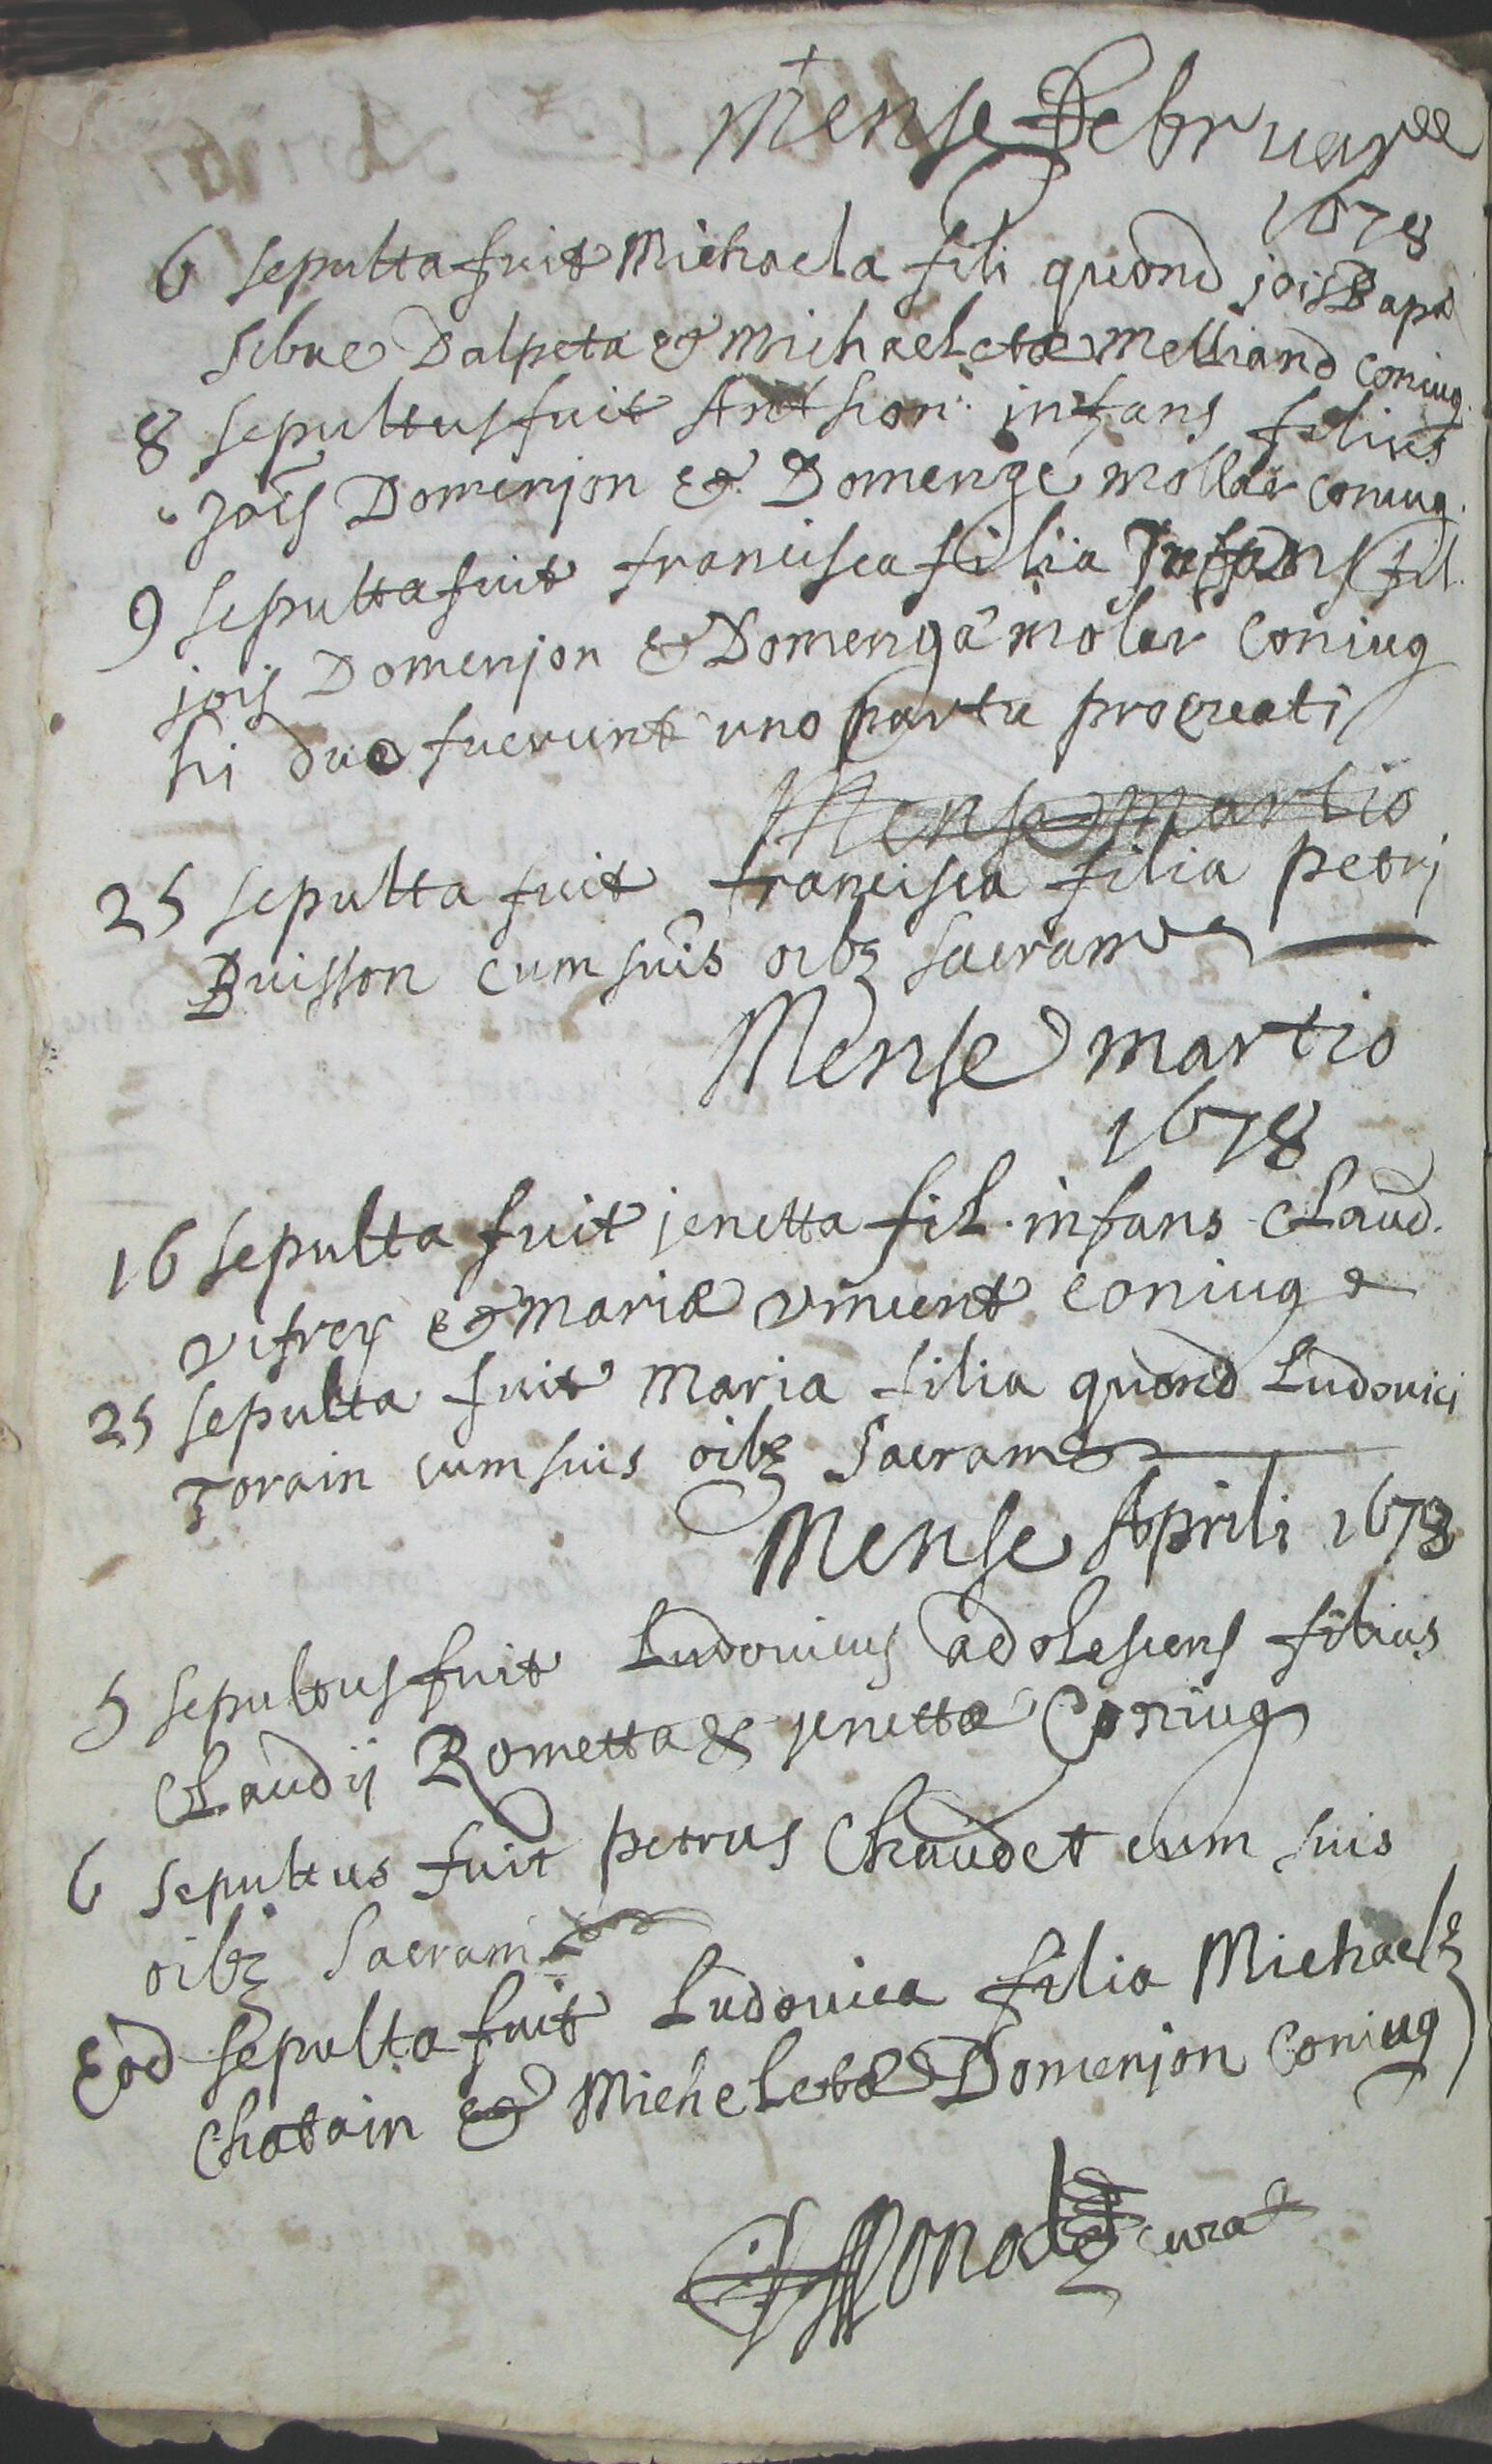 +
Mense Februarii
1678
6 sepulta fuit Michaela fili quond jois Bapā
Dalpeta & Michaeletæ Melliand coniug.
8 sepultus fuit Anthon: infans filius
Joīs Domenjon & Domenge mollar coniug.
9 sepulta fuit francisca filia Infans fil.
jois Domenjon & Domenga molar coniug
hi duo fuerunt uno partu procreati
Mense martio
25 sepulta fuit francisca filia petri
Buisson cum suis oibz sacram
Mense martio
1678
16 sepulta fuit jenetta fil. infans Claud.
vifrey & mariæ vincent coniug
25 sepulta fuit Maria filia quond Ludovici
Torain cum suis oibz Sacram
Mense Aprili 1678
5 sepultus fuit Ludovicus adolescens filius
Claudij Rometta & jenettæ Coniug
6 sepultus fuit petrus Chaudet cum suis
oibz Sacram
Eod sepulta fuit Ludovica filia Michaelz
Chatain & Micheletæ Domenjon coniug
curat